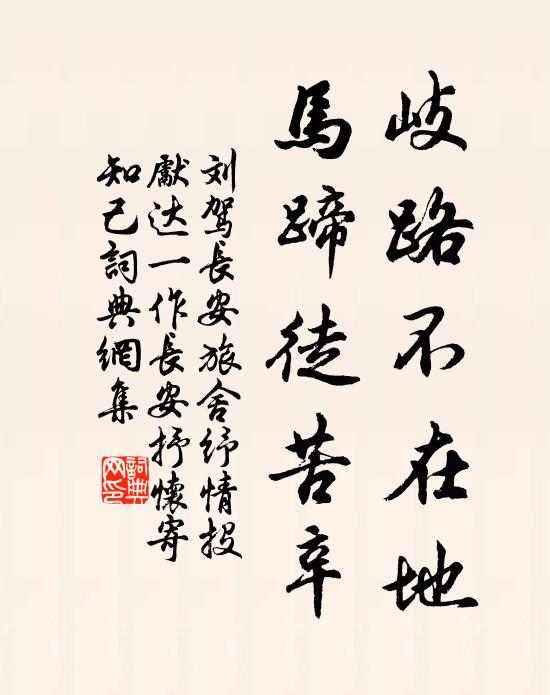 岐路不在地
馬蹄徒苦辛
刘駕長安旅舍纾情投
獻达一作長安抒懷寄
知己詞典網集
詞典
网印